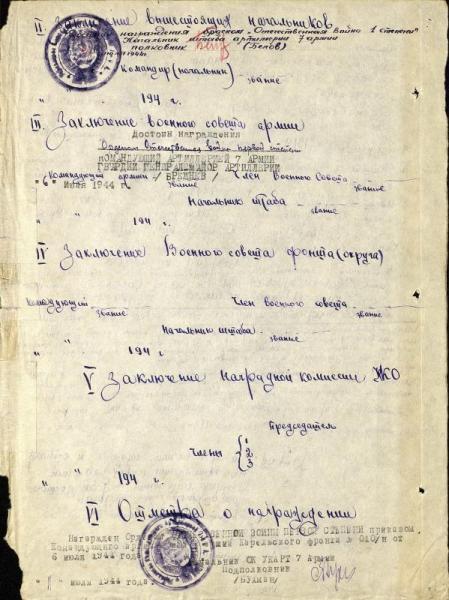 II вышестоящих начальников
награждения орденом „Отечественная Война 1 степени"
Начальник штаба артиллерии 7 армии
полковник (Белов)
Командир (начальник)
звание
" 194 г.
III Заключение военного совета армии
Достоин награждения
Орденом Отечественная Война первой степени
КОМАНДУЮЩИЙ АРТИЛЛЕРИЕЙ 7 АРМИИ
ГВАРДИИ ГЕНЕРАЛ-МАЙОР АРТИЛЛЕРИИ
Командующий армии Член Военного Совета
"6" июля 1944 г. звание звание
Начальник штаба
звание
" " 194 г.
IV Заключение Военного совета фронта (округа)
Командующий Член военного совета
звание звание
Начальник штаба
звание
" " 194 г.
V Заключение наградной комиссии НКО
Председатель
Члены { 1
2
3
" " 194 г.
VI Отметка о награждении
Награжден ОТЕЧЕСТВЕННОЙ ВОЙНЫ ПЕРВОЙ СТЕПЕНИ приказом
Командующего Карельского фронта № 010/н от
6 июля 1944 года. Начальник ОК УКАРТ 7 Армии
Подполковник
" " июля 1944 года